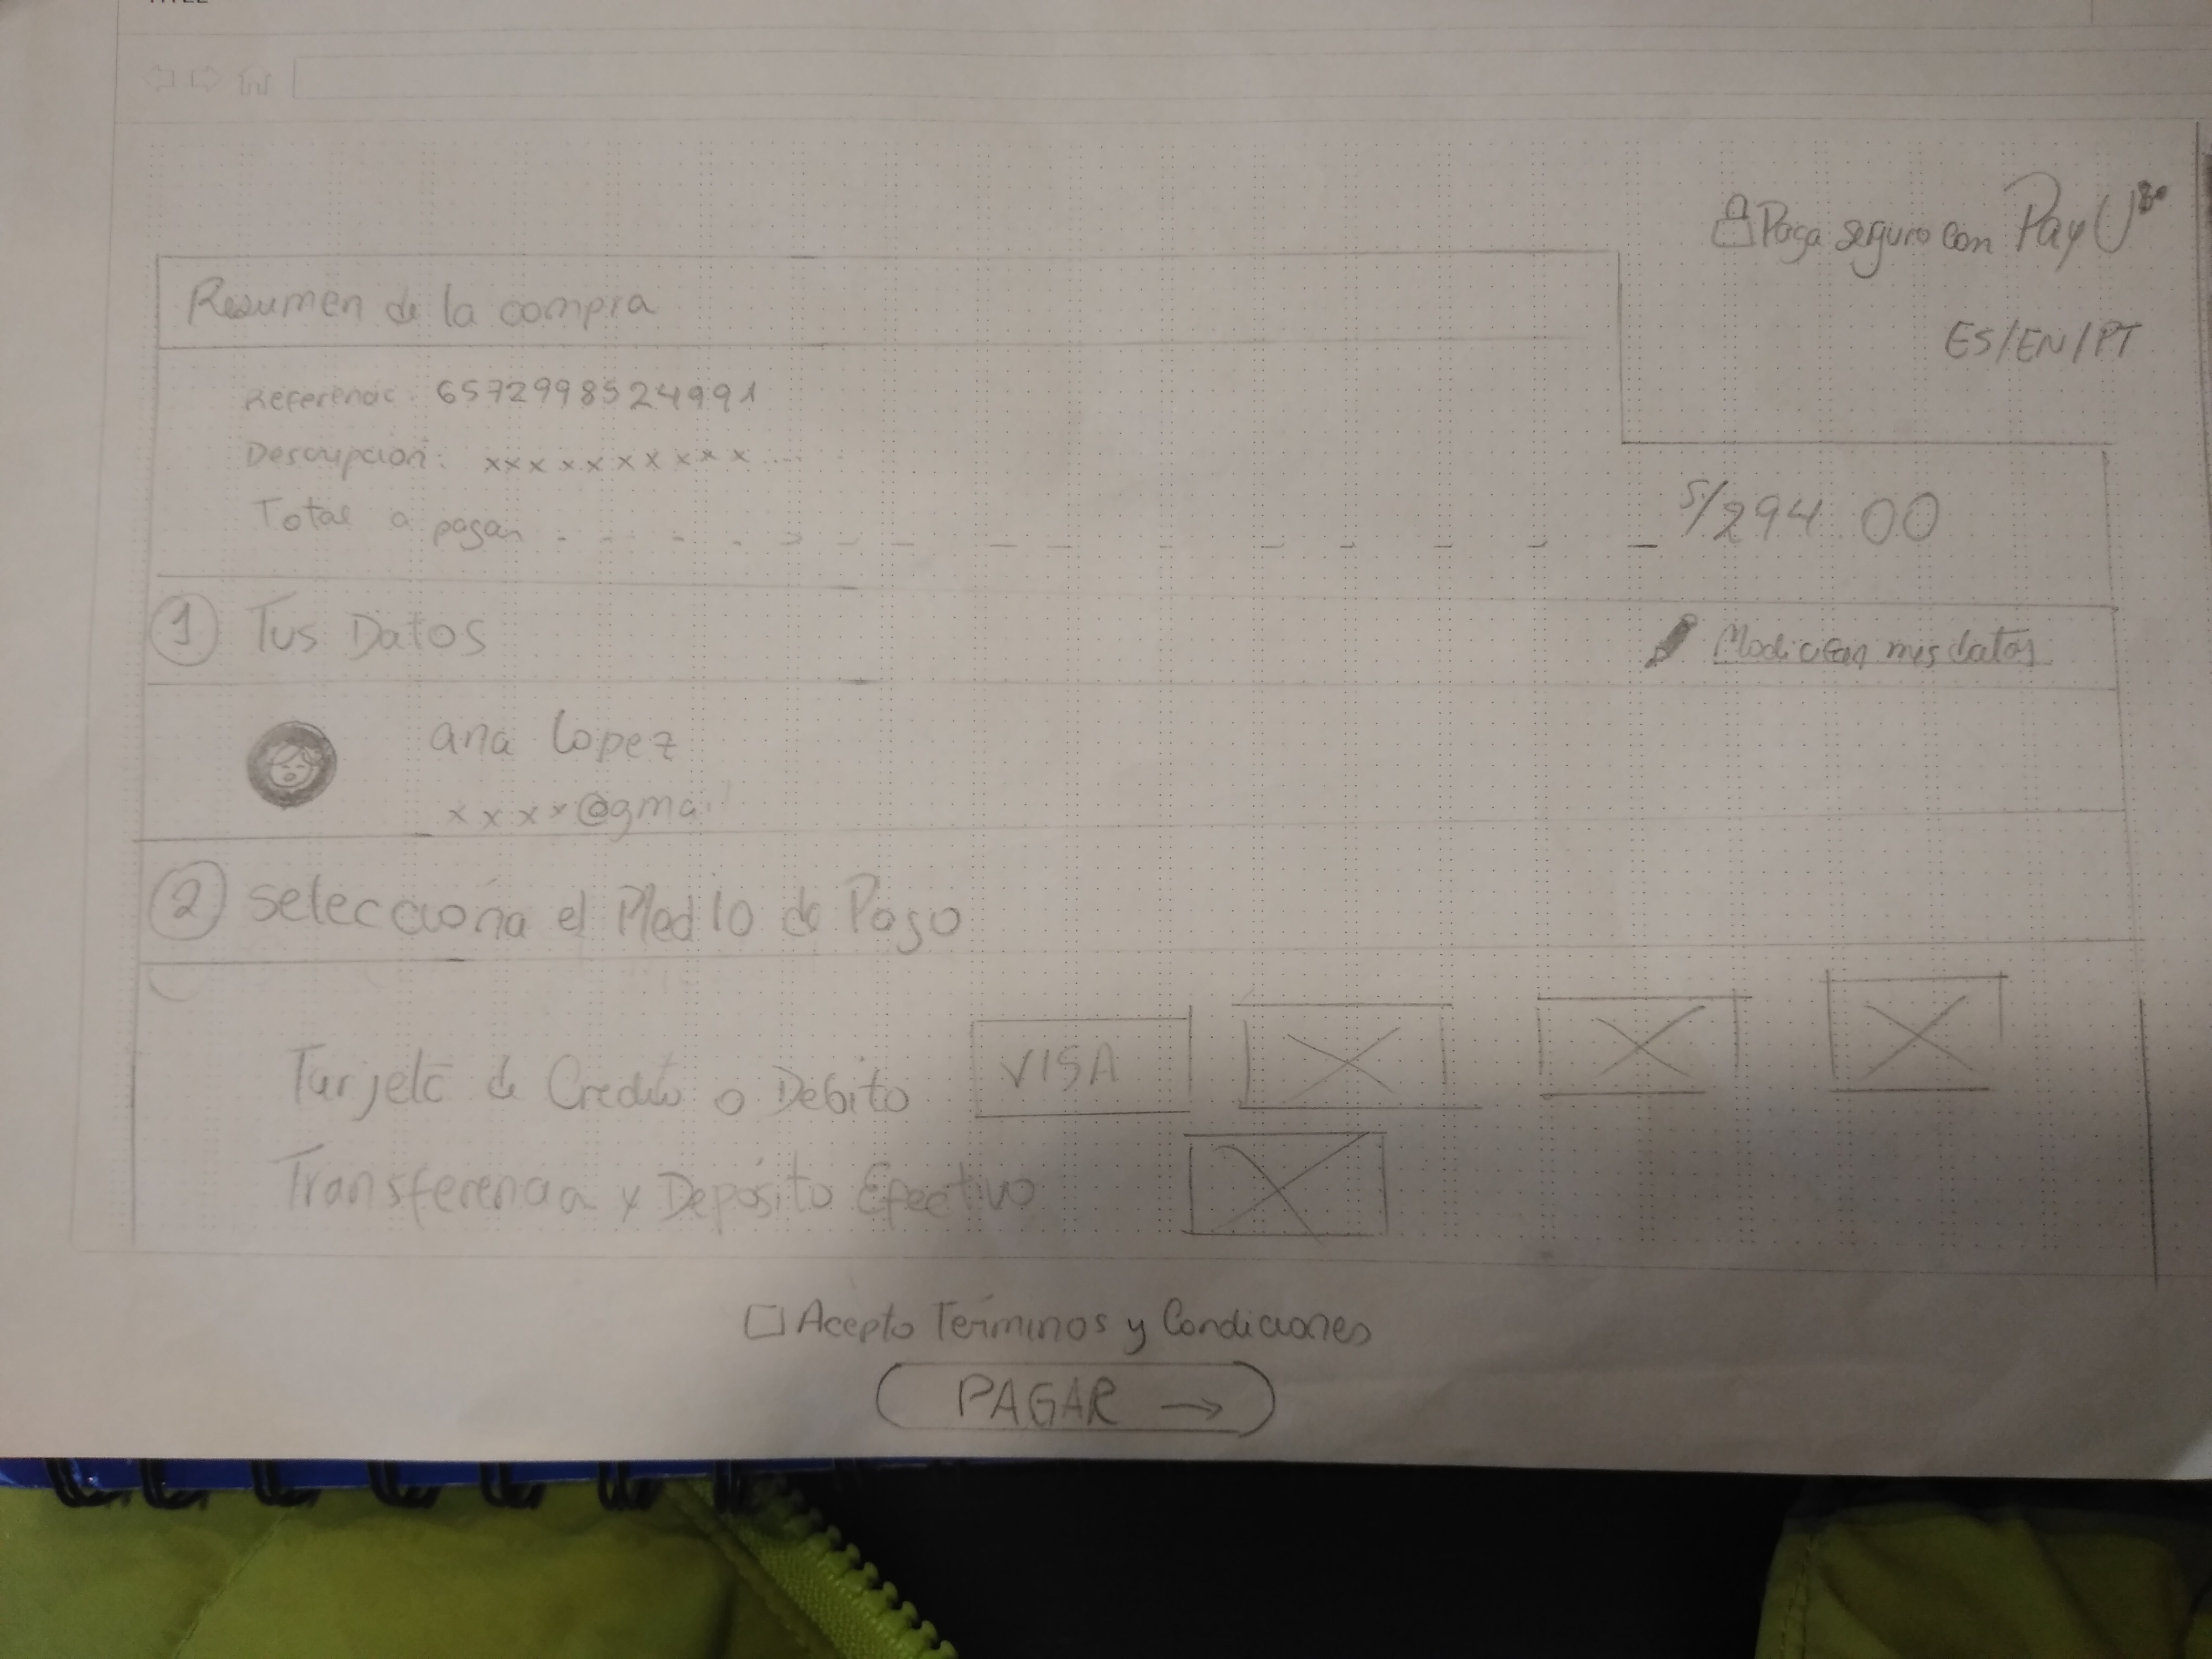 Paga seguro con PayU
ES/EN/PT
Resumen de la compra
Referenc. 6572998524991
Descripcion: xxxxxxxxxx...
Total a pagar - - - - - - - - - - - - - - - S/294.00
1 Tus Datos
Modificar mis datos
ana lopez
xxxx@gmail
2 selecciona el Medio de Pago
Tarjeta de Credito o Débito VISA
Transferencia y Depósito Efectivo
Acepto Términos y Condiciones
PAGAR →